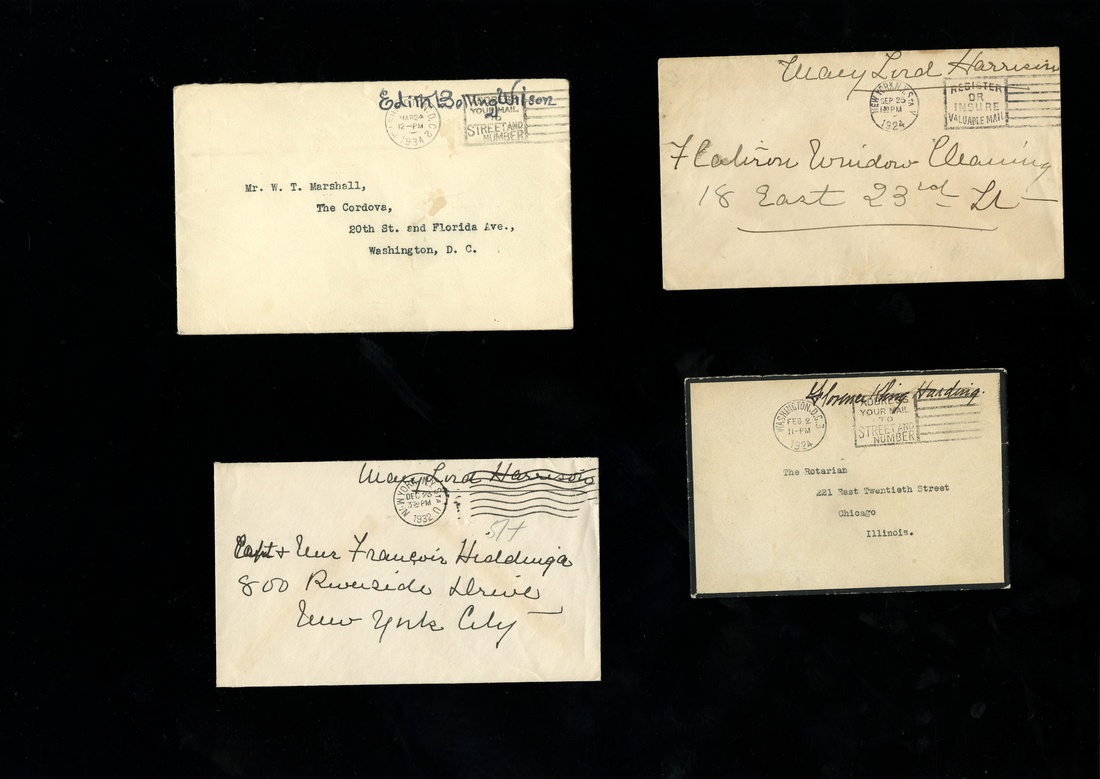 Edith Bolling Wilson
MAR 24
12-PM
1934
ADDRESS
YOUR MAIL
TO
STREET AND
NUMBER
Mr. W. T. Marshall,
The Cordova,
20th St. and Florida Ave.,
Washington, D. C.
Mary Lord Harrison
NEW YORK, N.Y. STA. V
SEP 25
PM
1924
REGISTER
OR
INSURE
VALUABLE MAIL
Flatiron Window Cleaning
18 East 23rd St
Mary Lord Harrison
NEW YORK, N.Y. STA. U
DEC 23
PM
1932
Capt & Mrs François Hiddinga
800 Riverside Drive
New York City
Florence Kling Harding.
WASHINGTON, D.C. 3
FEB 2
11-PM
1924
ADDRESS
YOUR MAIL
TO
STREET AND
NUMBER
The Rotarian
221 East Twentieth Street
Chicago
Illinois.